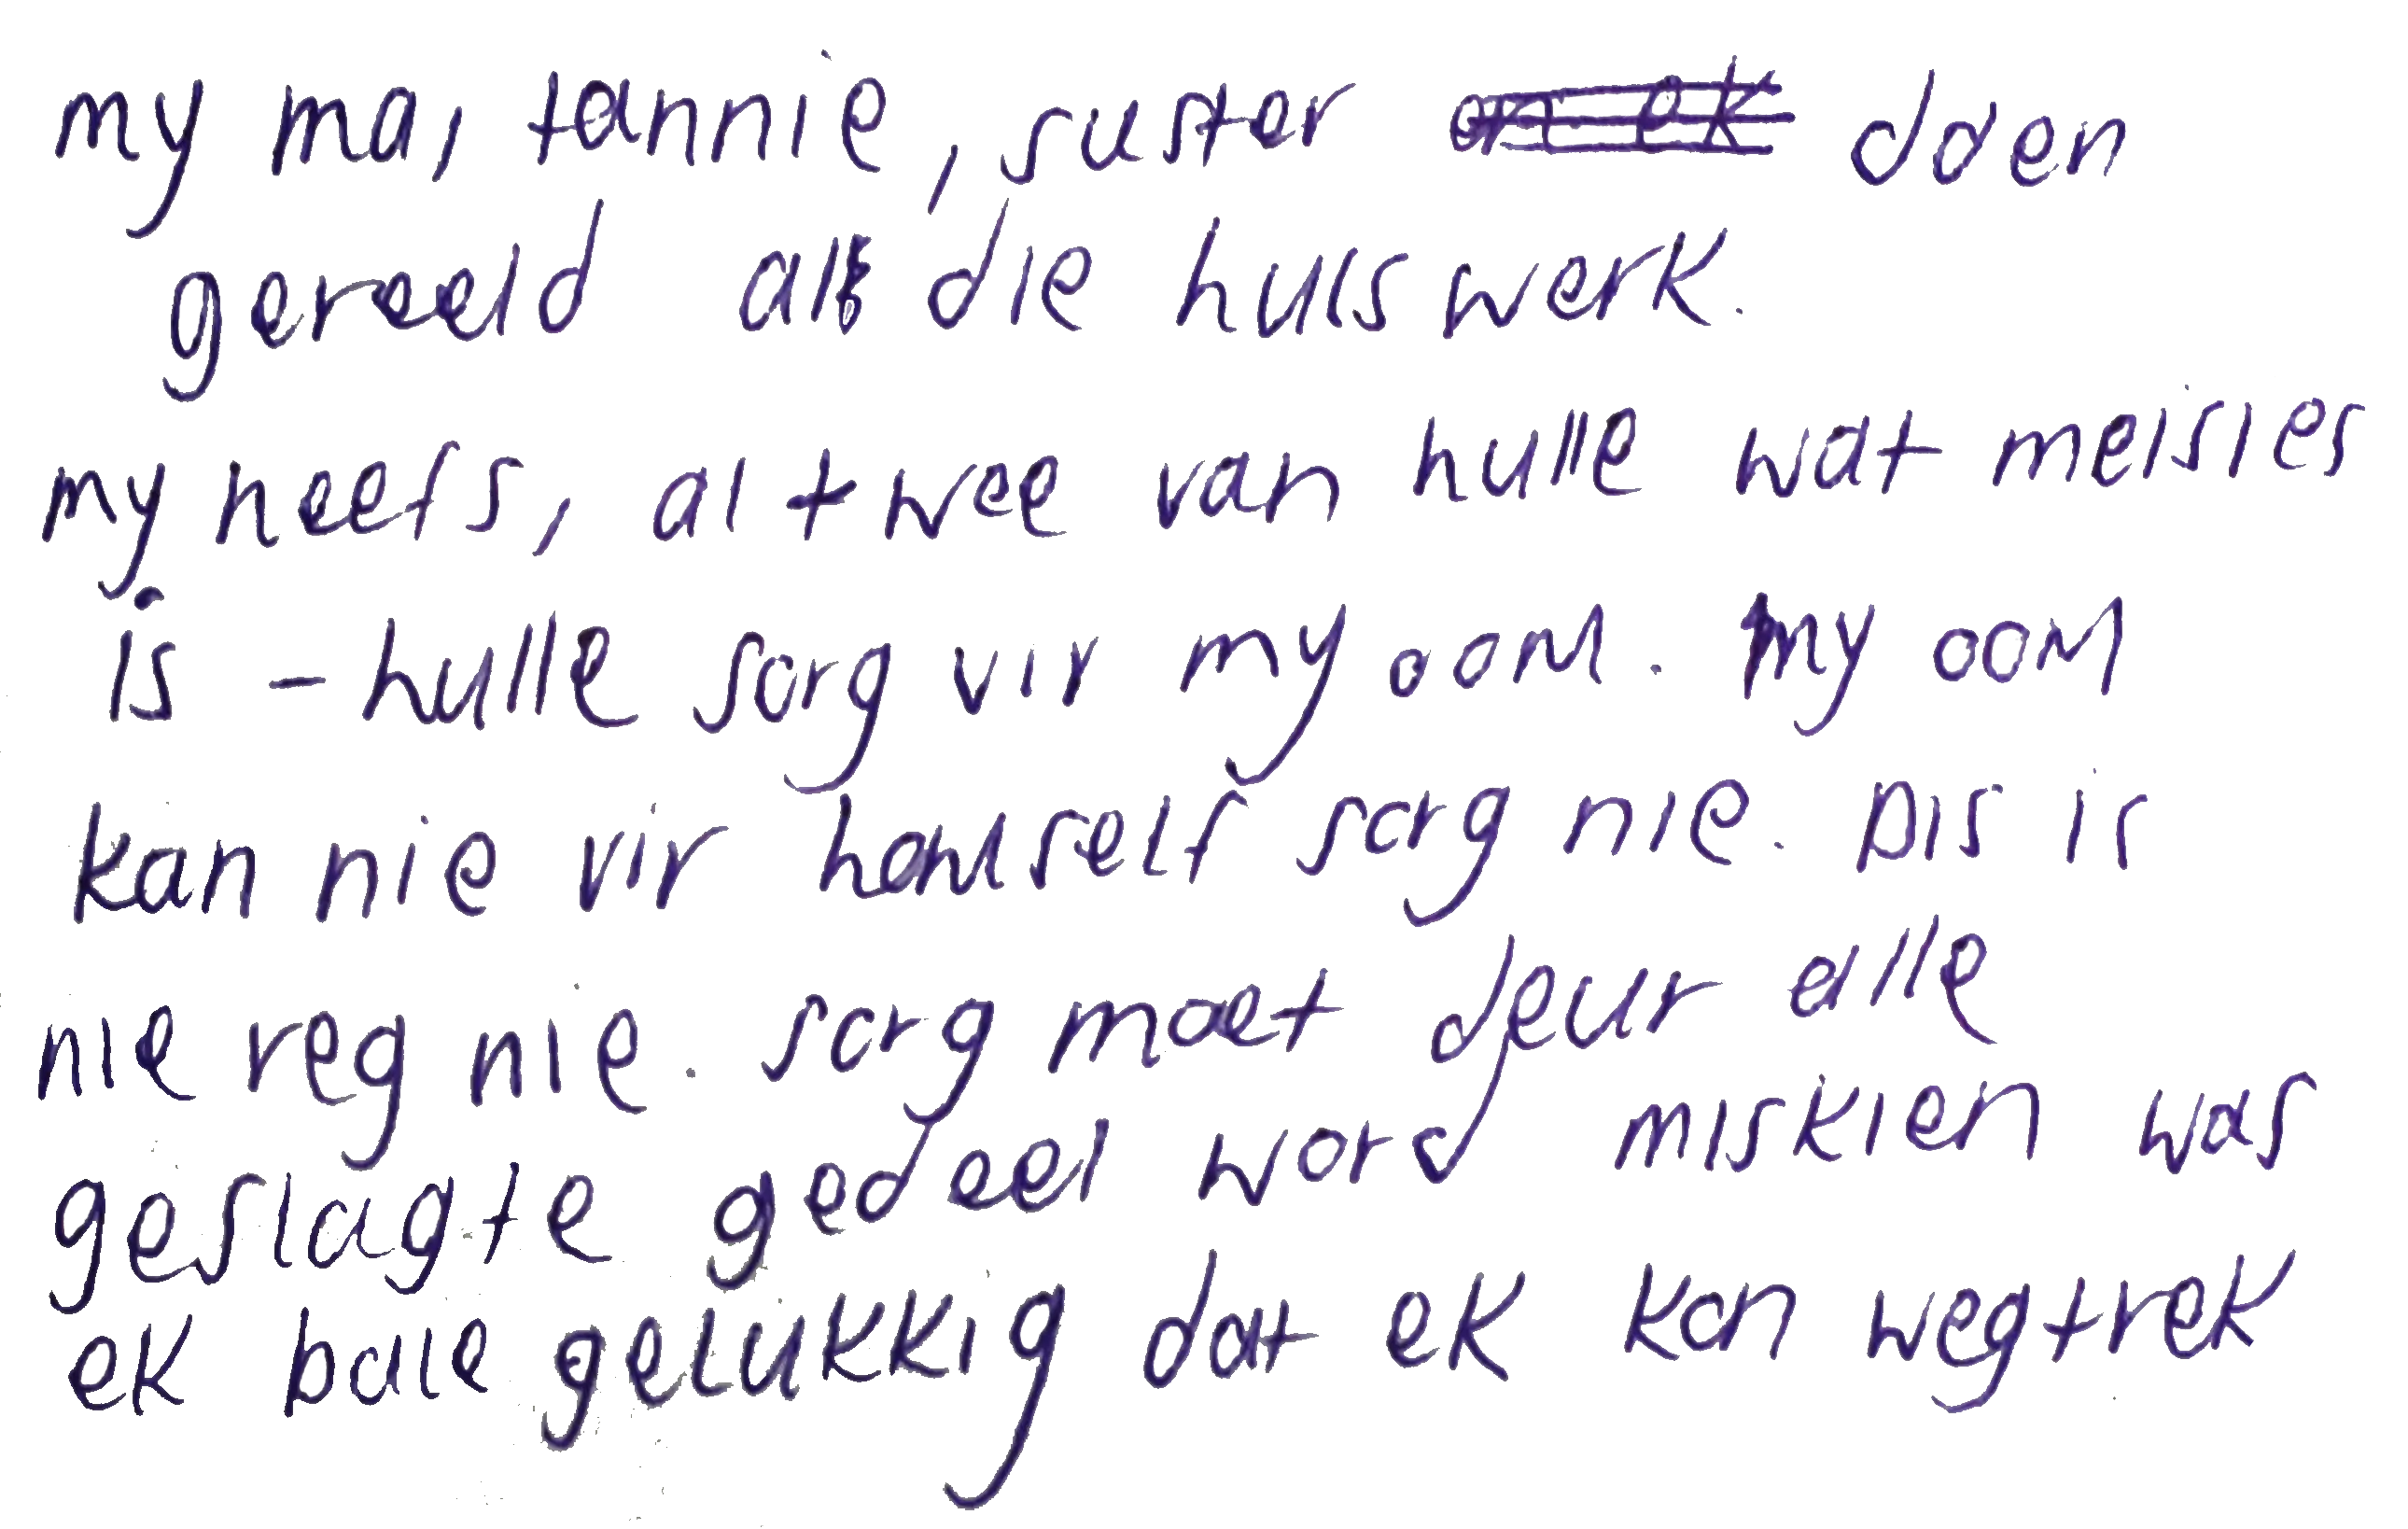 my ma, tannie, suster doen
gereeld al die huiswerk.
my neefs, al twee van hulle wat meisies
is - hulle sorg vir my oom. My oom
kan nie vir homself sorg nie. Dis is
nie reg nie. sorg moet deur alle
geslagte gedeel word miskien was
ek baie gelukkig dat ek kon wegtrek